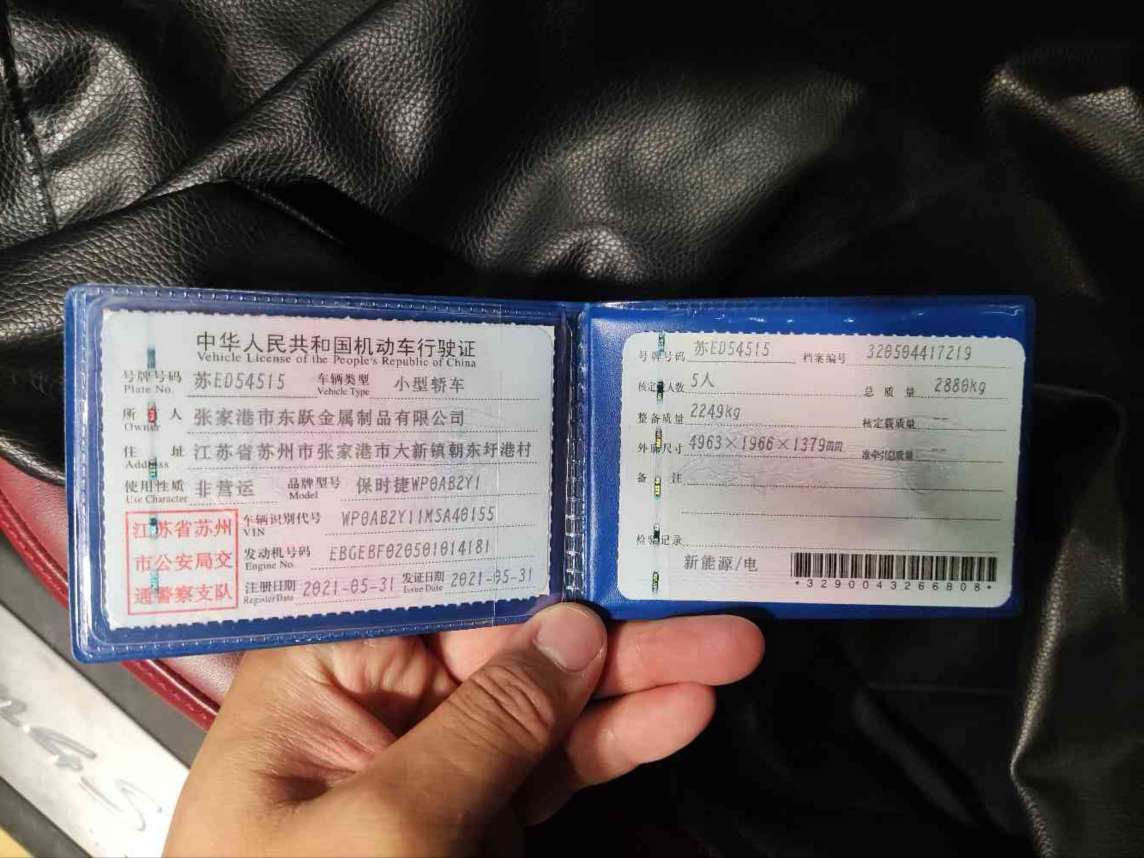 中华人民共和国机动车行驶证
Vehicle License of the People's Republic of China
号牌号码 苏ED54515 车辆类型 小型轿车
Plate No. Vehicle Type
所有人 张家港市东跃金属制品有限公司
Owner
住址 江苏省苏州市张家港市大新镇朝东圩港村
Address
使用性质 非营运 品牌型号 保时捷WP0AB2Y1
Use Character Model
江苏省苏州市公安局交通警察支队
车辆识别代号 WP0AB2Y11MSA40155
VIN
发动机号码 EBGEBF020501014181
Engine No.
注册日期 2021-05-31 发证日期 2021-05-31
Register Date Issue Date
号牌号码 苏ED54515 档案编号 320504417219
核定载人数 5人 总质量 2880kg
整备质量 2249kg 核定载质量 --
外廓尺寸 4963×1966×1379mm 准牵引总质量 --
备注
检验记录
新能源/电
*3290043266808*